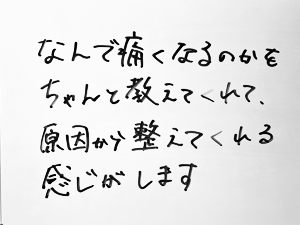 なんで痛くなるのかを
ちゃんと教えてくれて、
原因から整えてくれる
感じがします